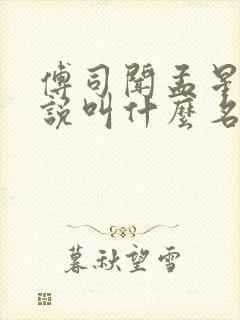 傅司闻孟星
說叫什麼名
暮秋望雪